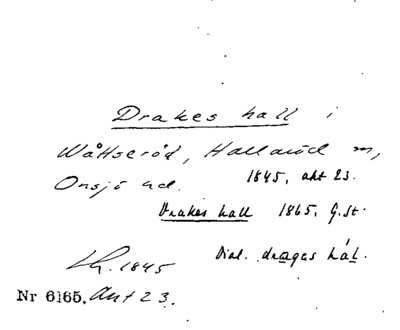 Drakes hall i
Wåttseröd, Hallaröd m,
Onsjö hd. 1845, akt 23.
Drakes hall 1865, G.St.
L.h. 1845 Dial. dragas hál.
Nr 6165. Akt 23.